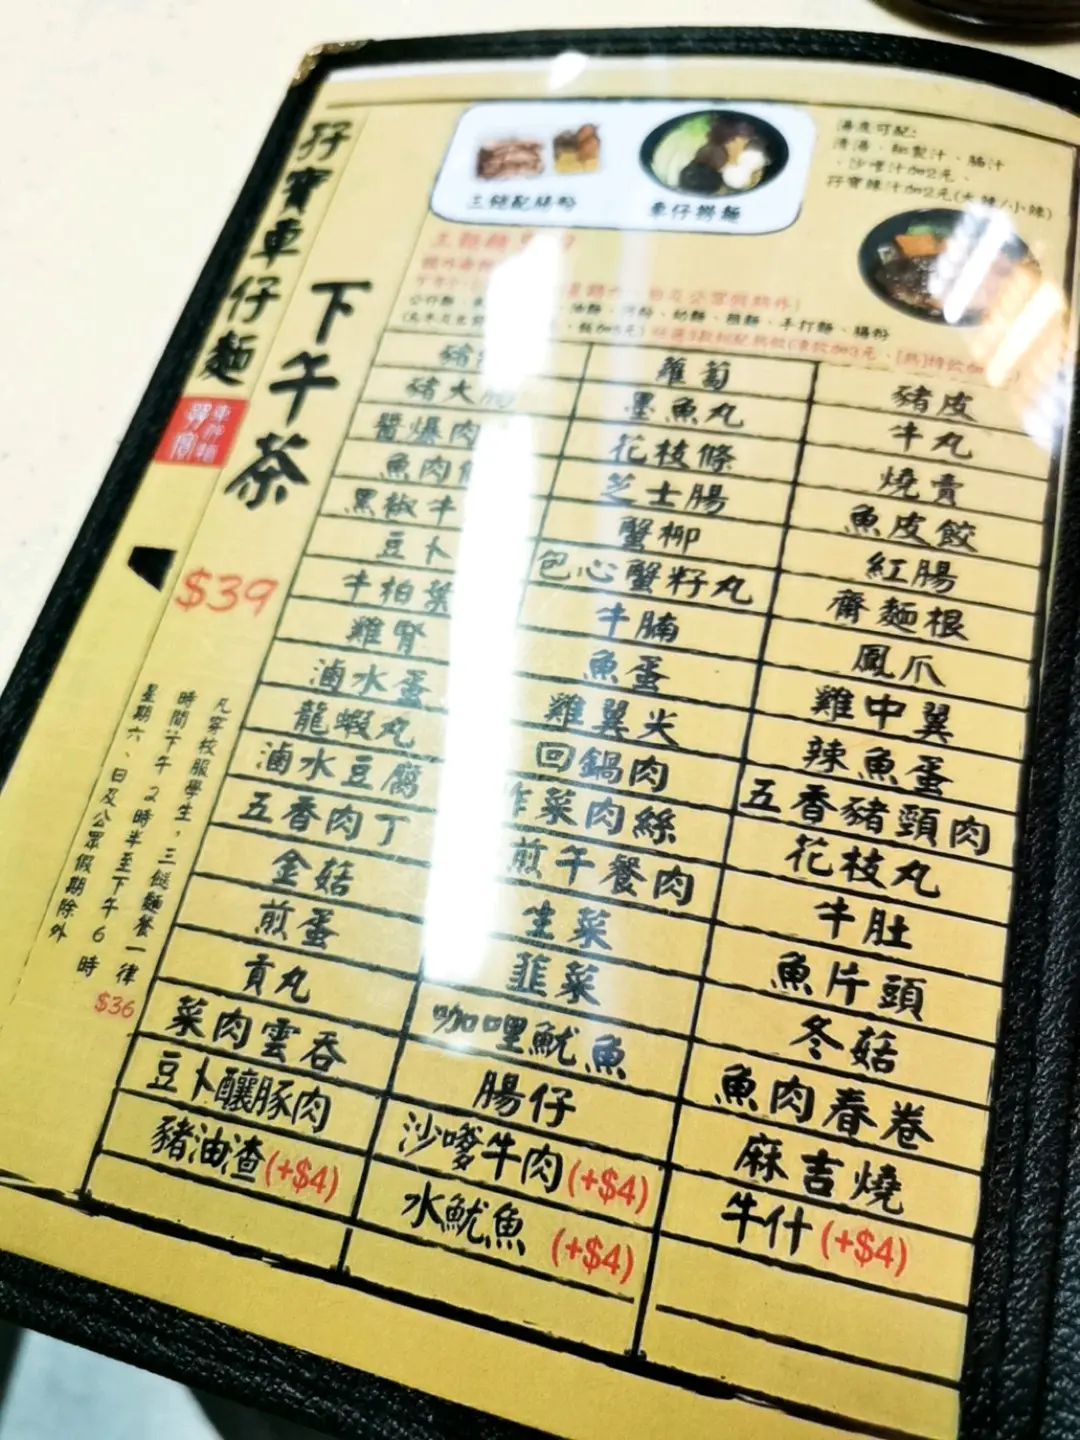 孖寶車仔麵
下午茶
$39
凡穿校服學生，三餸麵餐一律
$36
時間下午2時半至下午6時
星期六、日及公眾假期除外
三餸配腸粉
車仔撈麵
湯底可配：
清湯、秘製汁、腩汁
、沙嗲汁加2元、
孖寶辣汁加2元(大辣/小辣)
手打麵、腸粉
豬
豬大腸
醬爆肉
魚肉
黑椒牛
豆卜
牛柏葉
雞腎
滷水蛋
龍蝦丸
滷水豆腐
五香肉丁
金菇
煎蛋
貢丸
菜肉雲吞
豆卜釀豚肉
豬油渣(+$4)
蘿蔔
墨魚丸
花枝條
芝士腸
蟹柳
包心蟹籽丸
牛腩
魚蛋
雞翼尖
回鍋肉
炸菜肉絲
煎午餐肉
生菜
韮菜
咖哩魷魚
腸仔
沙嗲牛肉(+$4)
水魷魚(+$4)
豬皮
牛丸
燒賣
魚皮餃
紅腸
齋麵根
鳳爪
雞中翼
辣魚蛋
五香豬頸肉
花枝丸
牛肚
魚片頭
冬菇
魚肉春卷
麻吉燒
牛什(+$4)